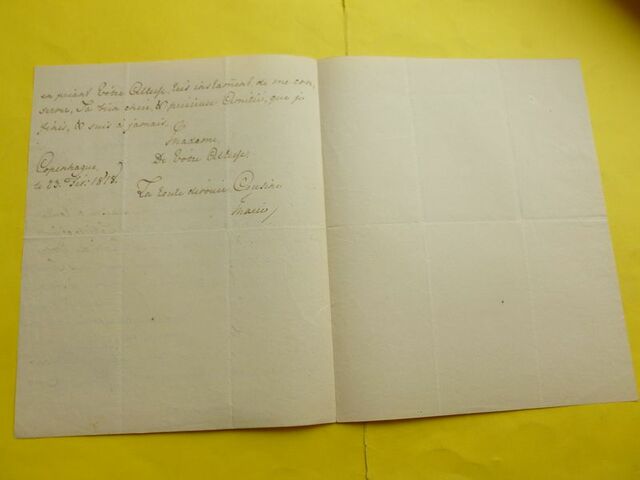 en priant Vôtre Altesse, très instament de me con,
server, Sa bien chere, & précieuse Amitié, que je
&  suis à jamais.
Madame,
De Vôtre Altesse,
Copenhague,
le 23. Fév: 1818.
La toute devouée Cousine
Marie